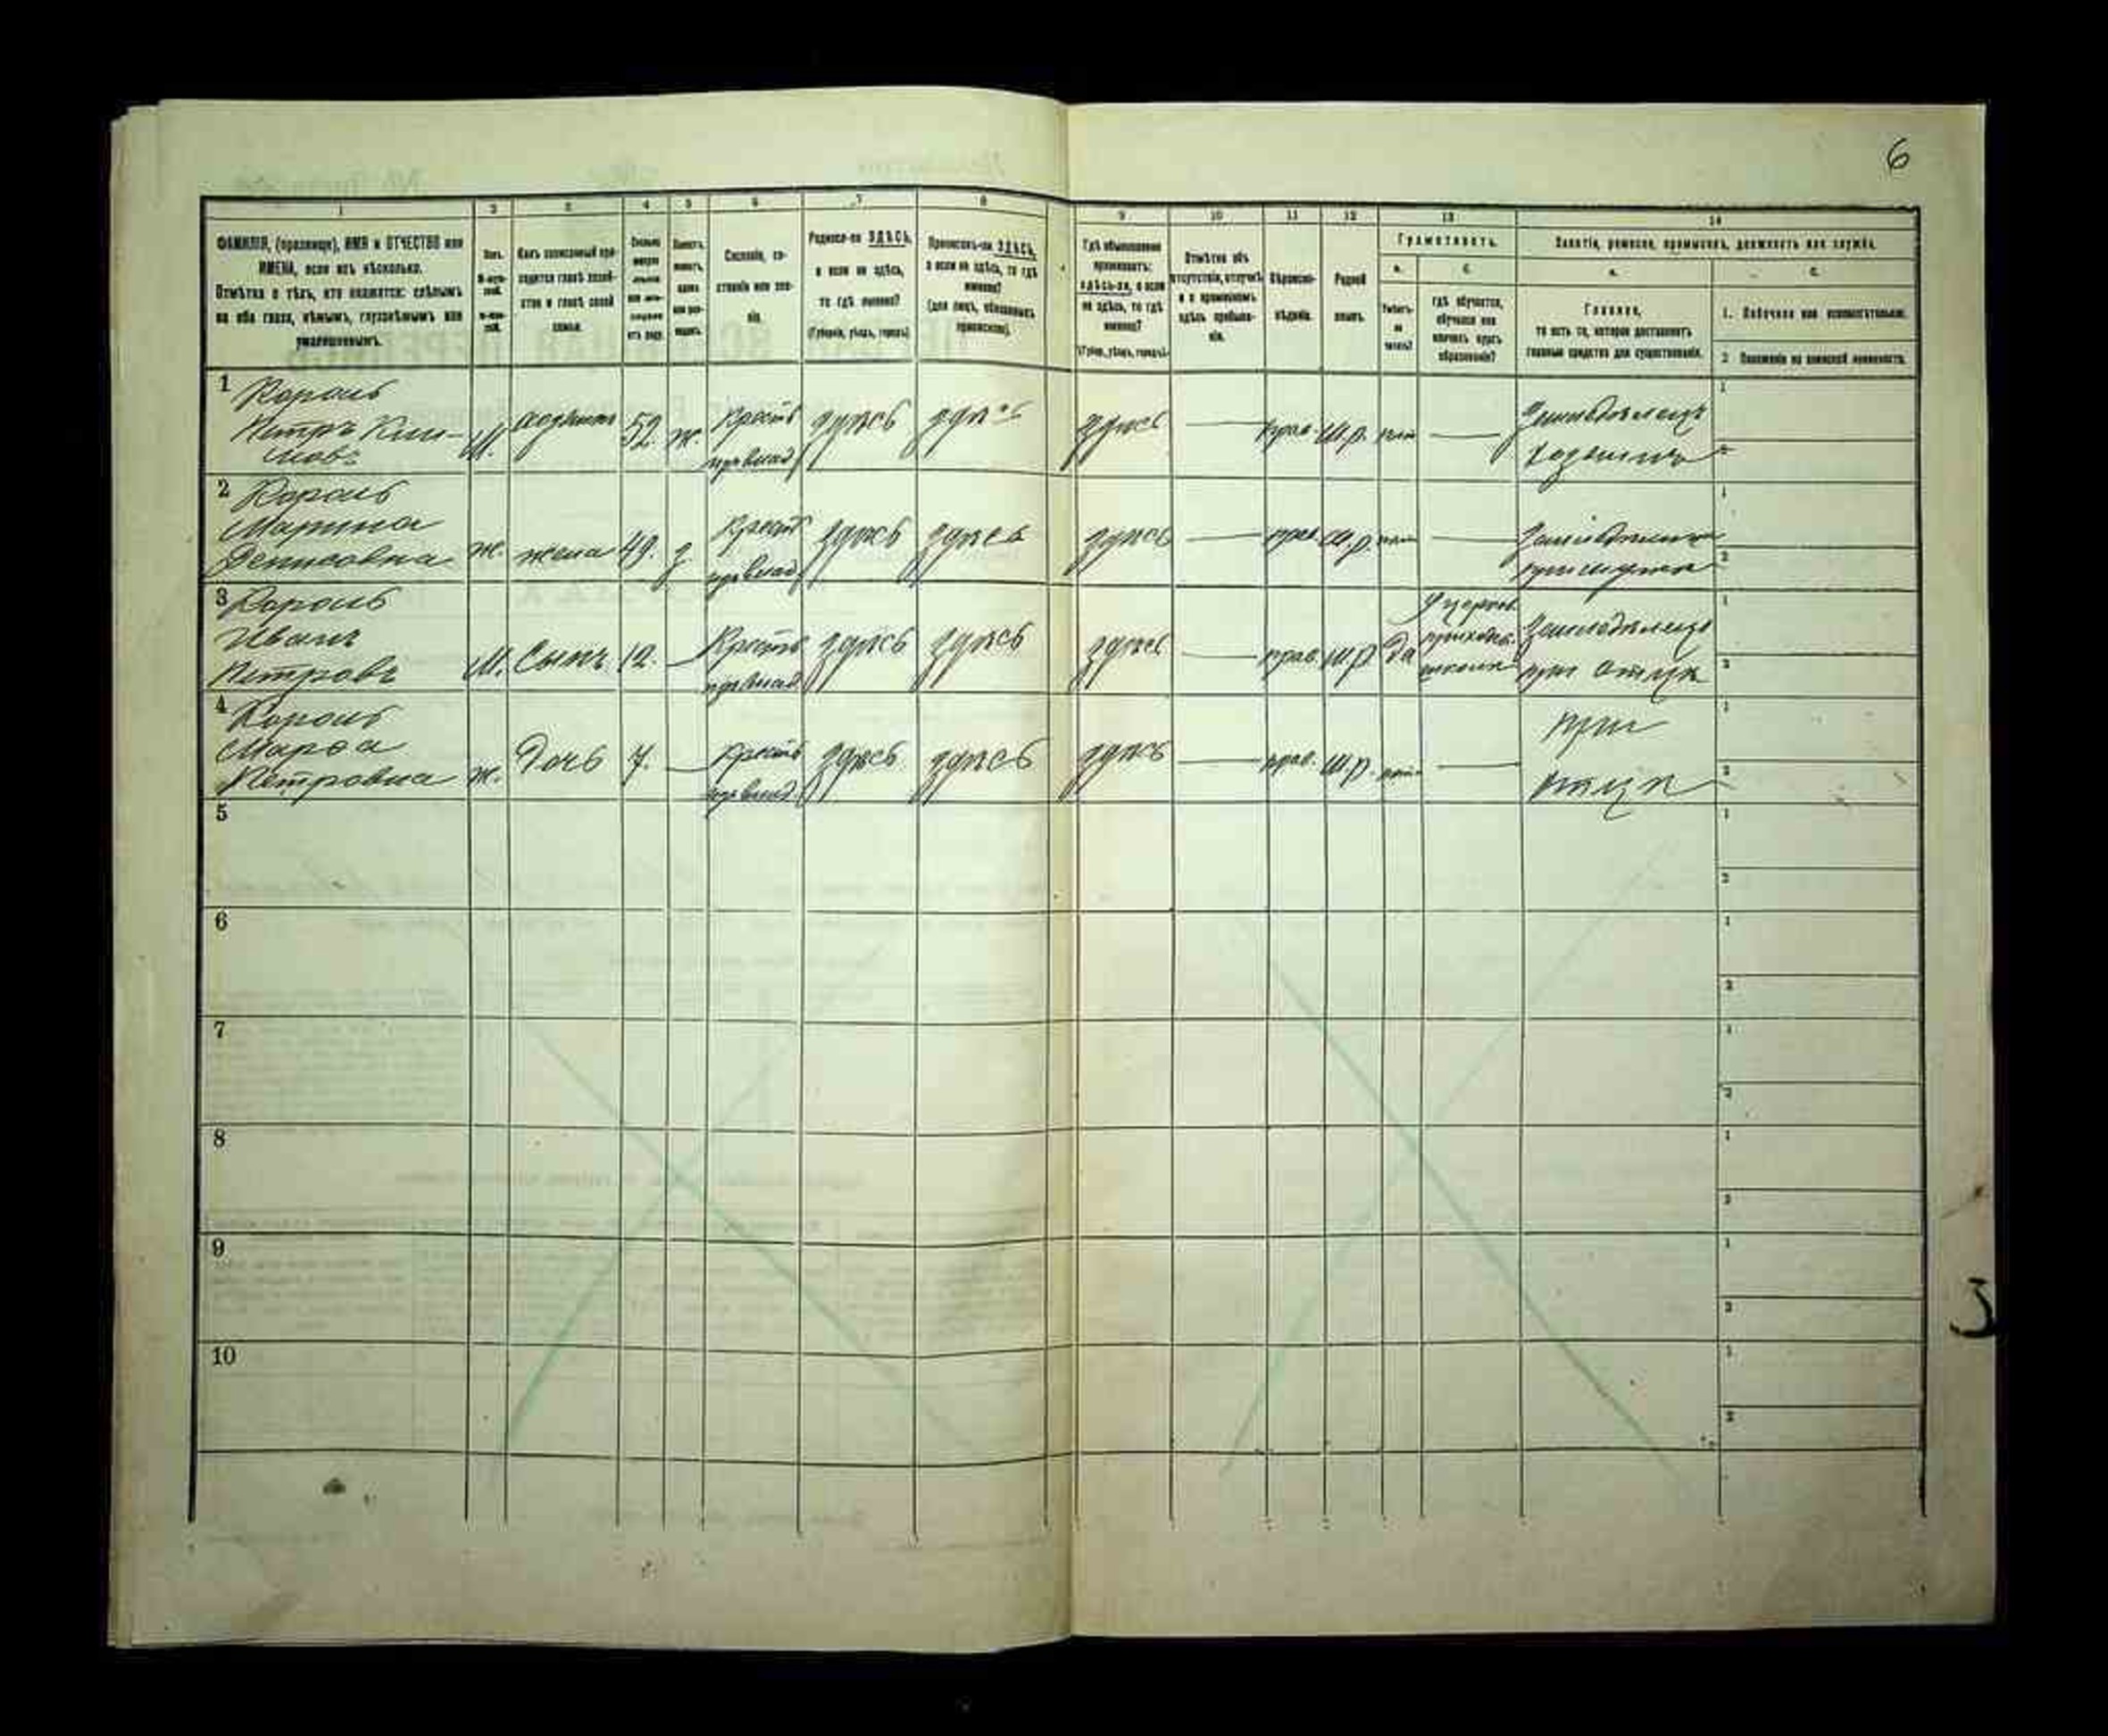 6
1 2 3 4 5 6 7 8 9 10 11 12 13 14
ФАМИЛІЯ, (прозвище), ИМЯ и ОТЧЕСТВО или
ИМЕНА, если ихъ нѣсколько.
Отмѣтка о тѣхъ, кто окажется: слѣпымъ
на оба глаза, нѣмымъ, глухонѣмымъ или
умалишеннымъ.
Полъ.
Какъ записанный при-
ходится главѣ хозяй-
ства и главѣ своей
семьи.
Сословіе, со-
стояніе или зва-
ніе.
Родился-ли ЗДѢСЬ,
а если не здѣсь,
то гдѣ именно?
(Губернія, уѣздъ, городъ)
Приписанъ-ли ЗДѢСЬ,
а если не здѣсь, то гдѣ
именно?
(для лицъ, обязанныхъ
припискою).
Гдѣ обыкновенно
проживаетъ:
здѣсь-ли, а если
не здѣсь, то гдѣ
именно?
(Губер., уѣздъ, городъ).
Отмѣтка объ
отсутствіи, отлучкѣ
и о временномъ
здѣсь пребыва-
ніи.
Вѣроиспо-
вѣданіе.
Родной
языкъ.
Грамотность.
а. б.
Умѣетъ-
ли
читать?
гдѣ обучается,
обучался или
кончилъ курсъ
образованія?
Занятіе, ремесло, промыселъ, должность или служба.
Главное,
то есть то, которое доставляетъ
главныя средства для существованія.
1. Побочное или вспомогательное.
2 Положеніе по воинской повинности.
1 Король
Петръ Кли-
мовъ
М. хозяинъ 52 ж. Крест. здѣсь здѣсь здѣсь — прав. м.р. нѣт —
Земледѣлецъ
хозяинъ
2 Король
Марина
Денисовна
ж. жена 49. з. Крест. здѣсь здѣсь здѣсь — прав. м.р. нѣт —
при мужѣ
3 Король
Иванъ
Петровъ
М. Сынъ 12. — Крест. здѣсь здѣсь здѣсь — прав. м.р. да
школа
Земледѣлецъ
при отцѣ
4 Король
Марѳа
Петровна
ж. Дочь 7. — Крест. здѣсь здѣсь здѣсь — прав. м.р. нѣт —
при
отцѣ
5
6
7
8
9
10
3